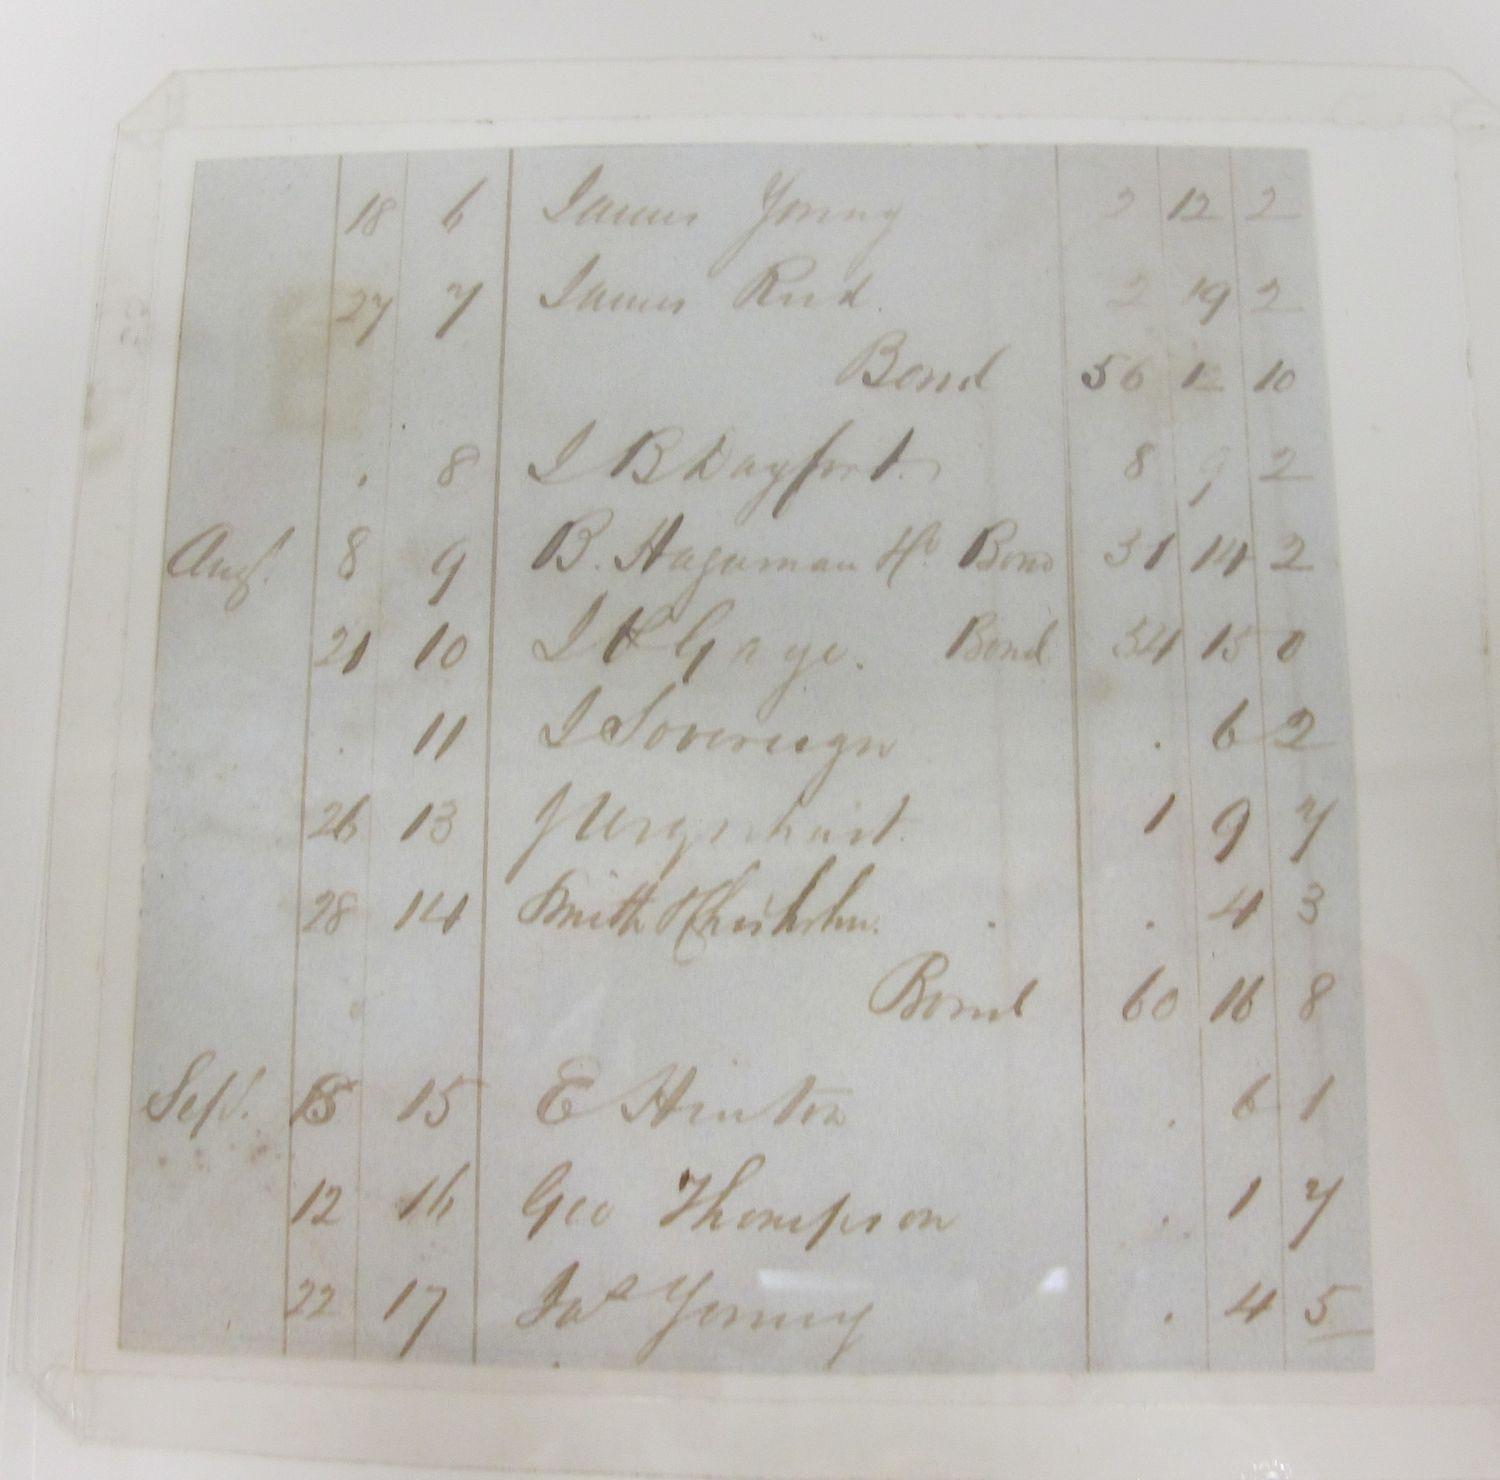 18 6 James Young 2 12 2
27 7 James Reid. 2 19 2
Bond 56 12 10
. 8 J B Dayfoot. 8 9 2
Aug. 8 9 B. Hagaman Bond 31 14 2
21 10 J Gage. Bond 34 15 0
. 11 J Sovereign . 6 2
26 13 J Urquhart. 1 9 7
28 14 Smith Chisholm. . 4 3
Bond 60 16 8
Sept. 15 E Hinton . 6 1
12 16 Geo Thompson . 1 7
22 17 Jas Young . 4 5